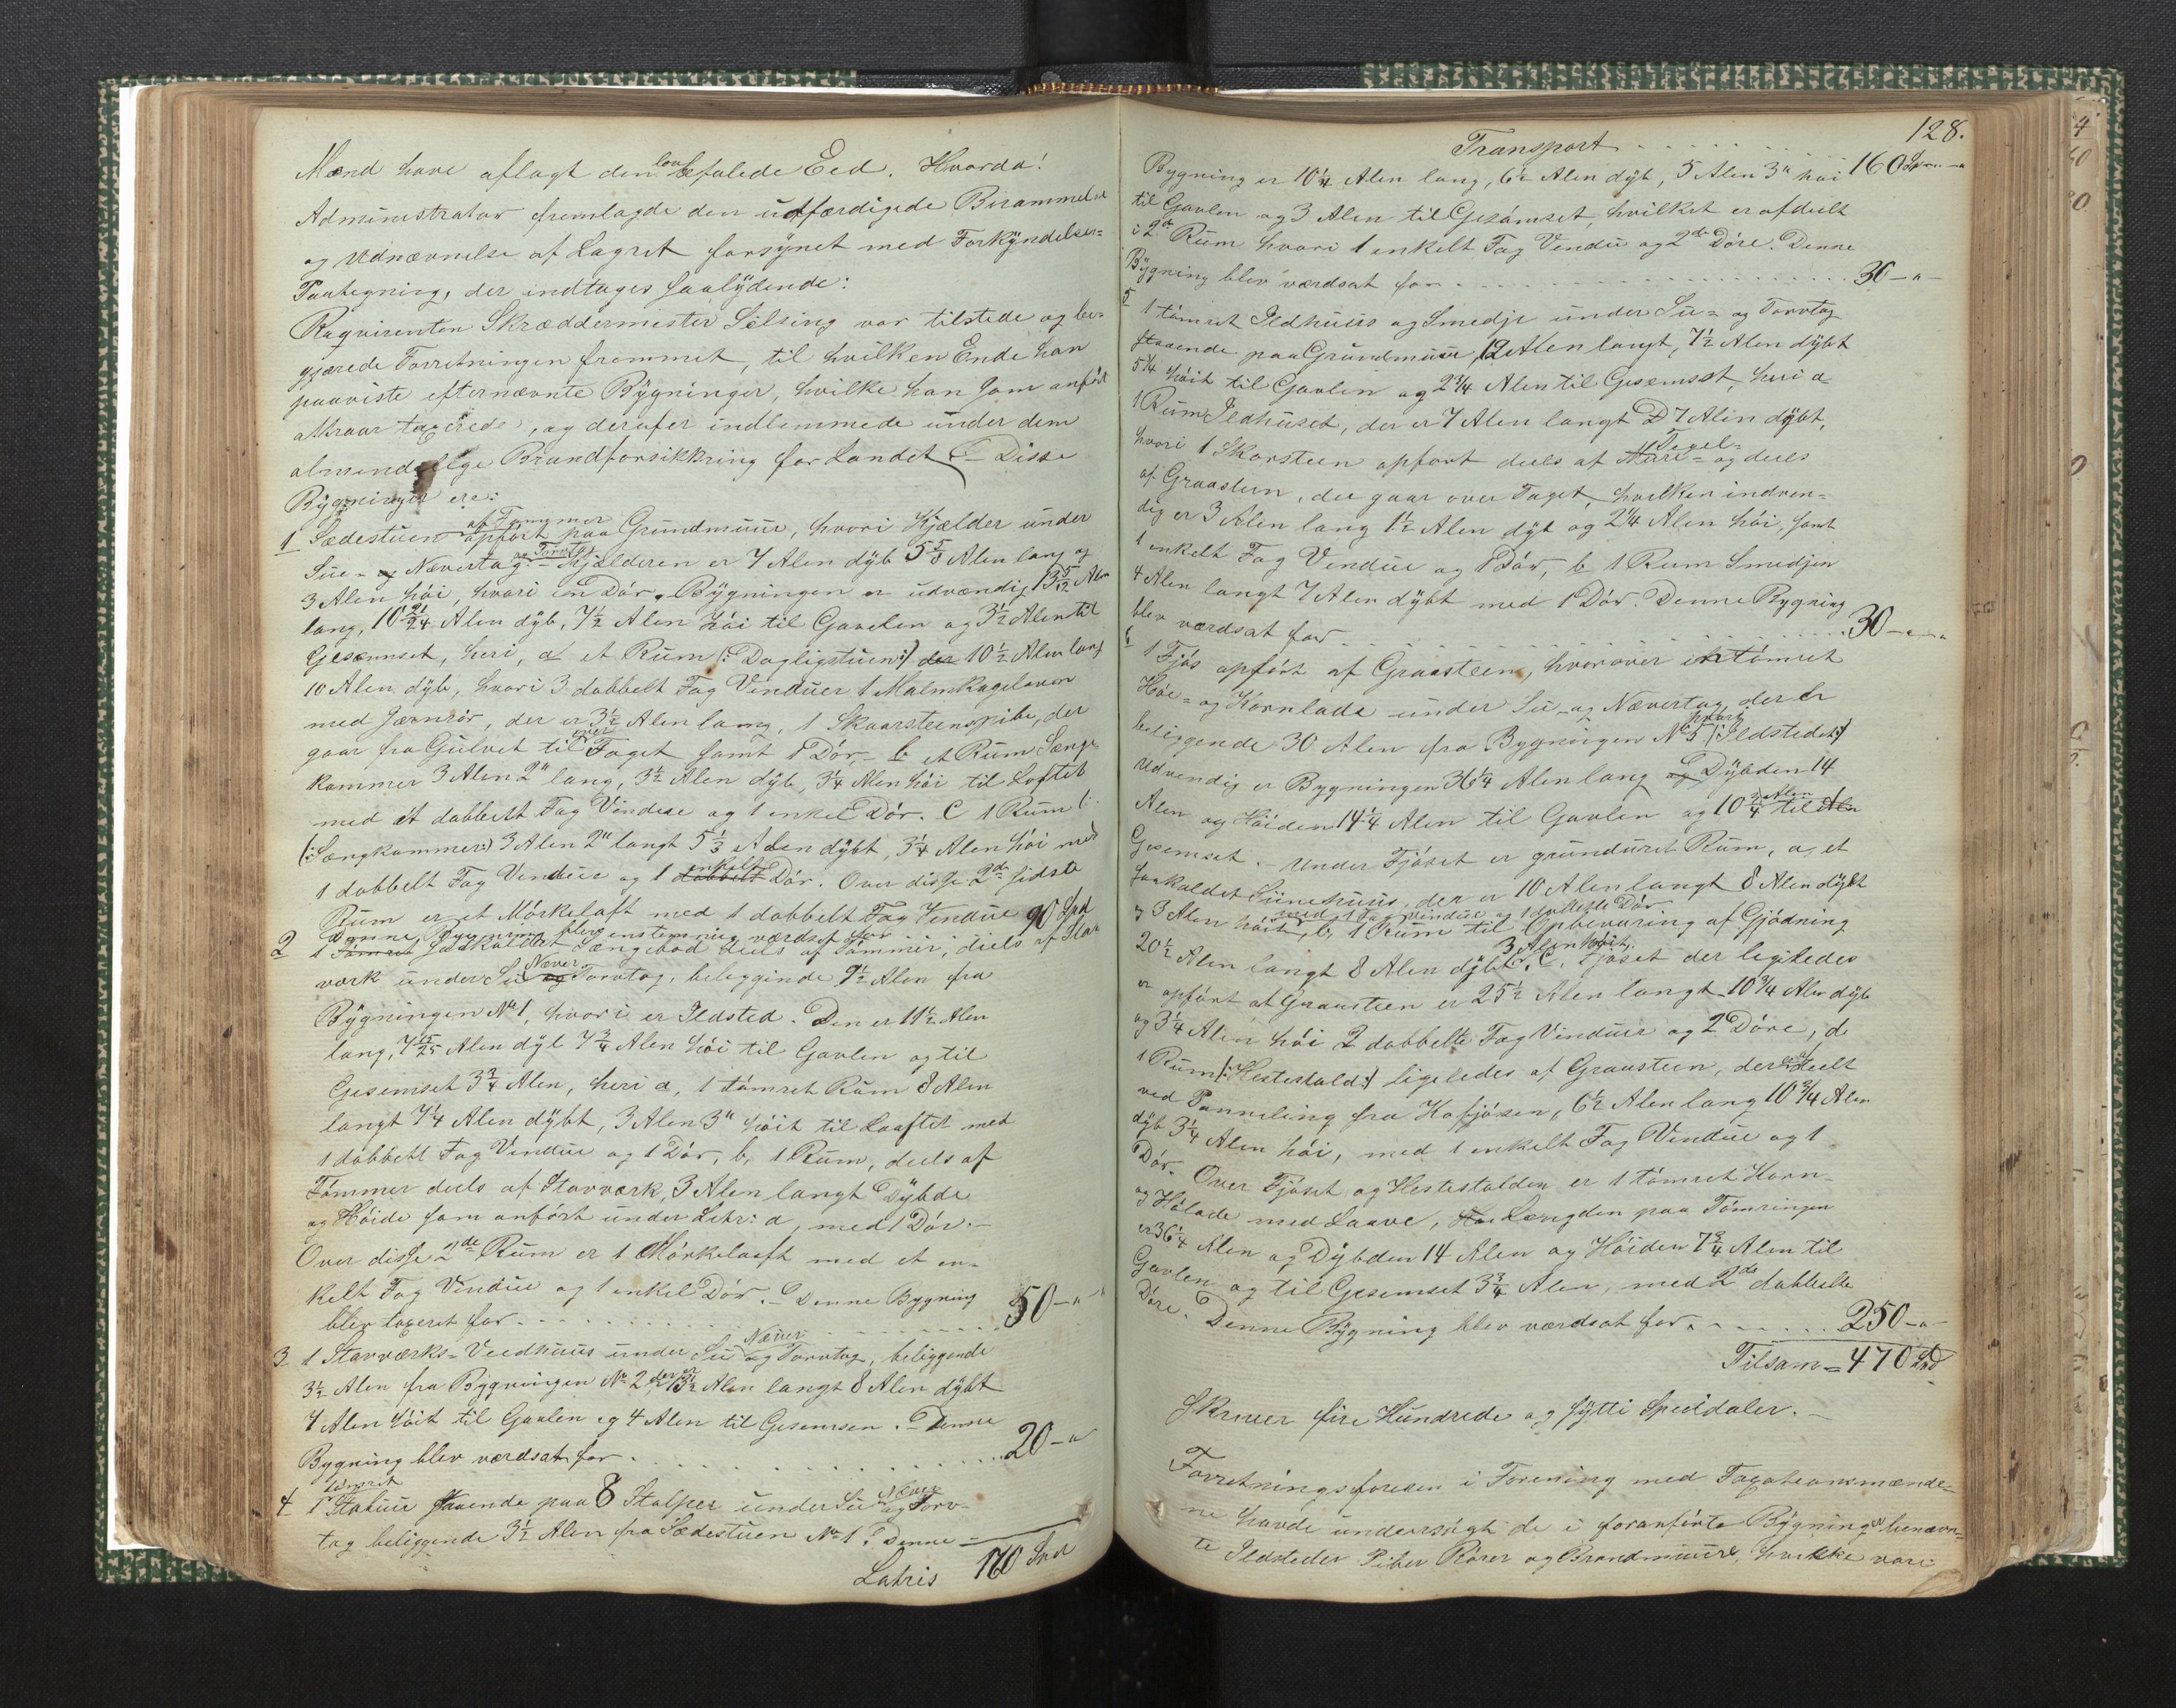 Mænd have aflagt den lovbefalede Eed. Hvorda!
Administrator fremlagde den udfærdigede Berammelse
og Udnævnelse af Lagret forsynet med Forkyndelses=
Paategning, der indtages saalÿdende:
Reqvirenten Skræddermester Selsing var tilstede og be-
gjærede Forretningen fremmet, til hvilken Ende han
paaviste efternævnte Bÿgninger, hvilke han som anført
attraar taxerede, og derefter indlemmede under den
almindelige Brandforsikkring for Landet. Disse
Bÿgninger ere:
1 Sædestuen af Tømmer opført paa Grundmuur, hvori Kjælder under
Sue- og Nævertag og Torvtag. Kjælderen er 7 Alen dÿb 5 5/3 Alen lang og
3 Alen høi, hvori en Dør. Bÿgningen er udvændig 13 5/12 Alen
lang, 10 21/24 Alen dÿb, 7½ Alen høi til Gavelen og 3½ Alen til
Gesemset, heri, a et Rum (: Dagligstuen :) der 10½ Alen lang
10 Alen dÿb, hvori 3 dobbelt Fag Vinduer 1 Malmkagelovn
med Jærnrør, der er 3½ Alen lang, 1 Skaarsteenspibe, der
gaar fra Gulvet til over Taget samt 1 Dør, b et Rum Sænge
kammer 3 Alen 2" lang, 3½ Alen dÿb, 3¼ Alen høi til Loftet
med et dobbelt Fag Vindue og 1 enkel Dør. C 1 Rum (:
(: Sængkammer :) 3 Alen 2" langt 5 1/3 Alen dÿbt, 3¼ Alen høi med
1 dobbelt Fag Vindue og 1 dobbelt enkelt Dør. Over disse 2de sidste
Rum er et Mørkeloft med 1 dobbelt Fag Vindue 90 Spd
Denne Bygning blev enstemmig værdsat for
2 1 Tømret saakaldet Sængebod deels af Tømmer, deels af Stav
værk under Su Næver og Torvtag, beliggende 9½ Alen fra
Bÿgningen No 1, hvori er Ildsted. Den er 11½ Alen
lang, 7 15/25 Alen dÿb 7¾ Alen høi til Gavlen og til
Gesemset 3¾ Alen, heri a, 1 tømret Rum 8 Alen
langt 7¼ Alen dÿbt, 3 Alen 3" høit til Looftet med
1 dobbelt Fag Vindue og 1 Dør, b, 1 Rum, deels af
Tømmer deels af Stavværk, 3 Alen langt Dÿbde
og Høide som anført under Litr: a, med 1 Dør.-
Over disse 2de Rum er 1 Mørkelooft med et en-
kelt Fag Vindue og 1 enkel Dør. - Denne Bygning
blev taxeret for . . . . 50-"-
3 1 Stavværks-Veedhuus under Su Næver og Torvtag, beliggende
3½ Alen fra Bÿgningen No 2 der er 13½ Alen langt 8 Alen dÿbt
7 Alen høit til Gavlen og 4 Alen til Gesemsen. - Denne
Bygning blev værdsat for . . . . 20-"
4 1 tømret Stabuur staaende paa 8 Stolper under Su Næver og Torv-
tag beliggende 3½ Alen fra Sædestuen No 1. Denne
Latris 160 Spd
128.
Transport . . . . 160 Spd-"-
Bÿgning er 10¼ Alen lang, 6½ Alen dÿb, 5 Alen 3" høi
til Gavlen og 3 Alen til Gesimset, hvilket er afdeelt
i 2de Rum hvori 1 enkelt Fag Vindu og 2de Døre. Denne
Bÿgning blev værdsat for . . . . 30-"-
5 1 tømret Ildhuus og Smedje under Su- og Torvtag
staaende paa Grundmuur, 12 Alen langt, 7½ Alen dÿbt
5¼ høit til Gavlen og 2¾ Alen til Gesemset, heri a
1 Rum Ildhuset, der er 7 Alen langt 7 Alen dÿbt,
hvori 1 Skorsteen opført deels af Muur- Tegel- og deels
af Graasteen, der gaar over Taget, hvilken indven-
dig er 3 Alen lang 1½ Alen dÿb og 2¼ Alen høi, samt
1 enkelt Fag Vindue og 1 Dør, b 1 Rum Smedjen
4 Alen langt 7 Alen dÿbt med 1 Dør. Denne Bygning
blev værdsat for . . . . 30-"-
6 1 Fjøs opført af Graasteen, hvorover er tømret
Høe- og Kornlade under Su- og Nævertag, der er
beliggende 30 Alen fra Bygningen No 5 (: Ildstedet :)
Udvendig er Bygningen 36¼ Alen lang og Dÿbden 14
Alen og Høiden 14¼ Alen til Gavlen og 10¾ Alen til
Gesemset. - Under Fjøset er grundmuret Rum, a, et
saakaldet Siinehuus, der er 10 Alen langt 8 Alen dÿbt
og 3 Alen høit, med 1 Fag Vindue og 1 dobbelt Dør b, 1 Rum til Opbevaring af Gjødning
20½ Alen langt 8 Alen dÿbt 3 Alen høit. C. Fjøset der ligeledes
er opført af Graasteen er 25½ Alen langt 10¾ Alen dÿb
og 3¼ Alen høi 2 dobbelte Fag Vinduer og 2 Døre, d
1 Rum (: Hestestald :) ligeledes af Graasteen, der er afdeelt
ved Panneling fra Kofjøsen, 6½ Alen lang 10¾ Alen
dÿb 3¼ Alen høi, med 1 enkelt Fag Vindue og 1
Dør. Over Fjøset og Hestestalden er 1 tømret Korn-
og Hølade med Laave, Længden paa Tømringen
er 36¼ Alen og Dÿbden 14 Alen og Høiden 7¾ Alen til
Gavlen og til Gesemset 3¾ Alen, med 2de dobbelte
Døre. Denne Bÿgning blev værdsat for . . . . 250-"-
Tilsam = 470 Spd
Skriver fire Hundrede og sÿtti Speciedaler.-
Forretningsforeren i Forening med Taxationsmænde-
ne havde undersøgt de i foranførte Bÿgninger benævn-
te Ildsteder Piber Rører og Brandmuure, hvilke vare